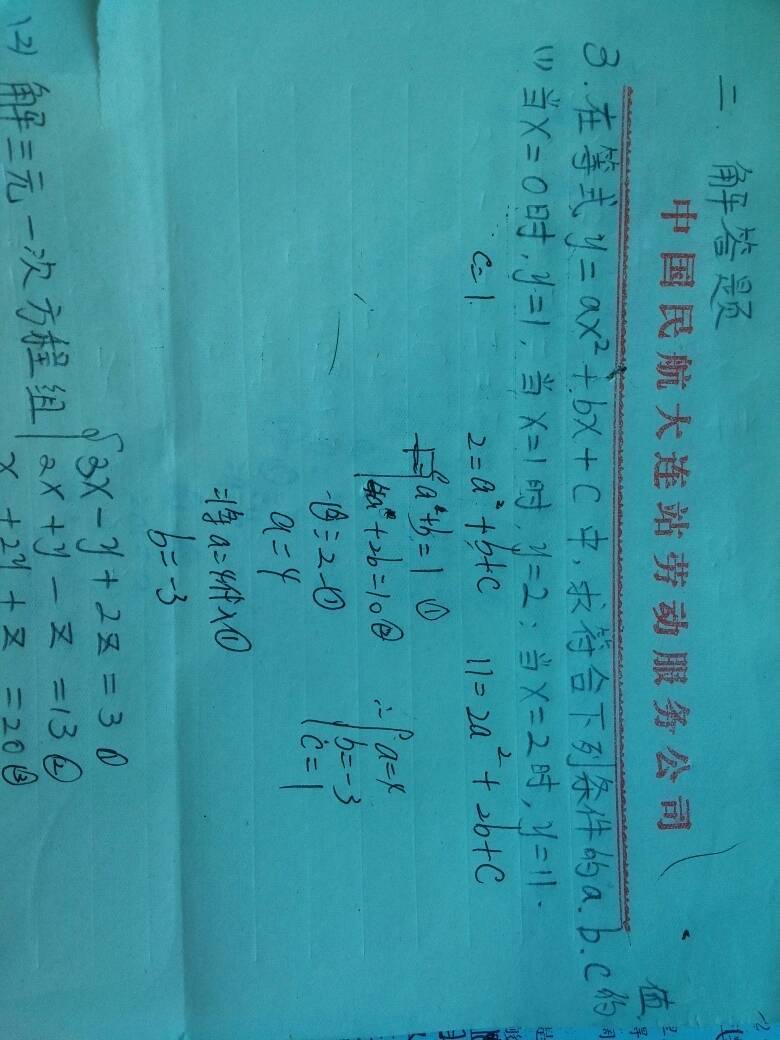 中国民航大连站劳动服务公司
二、解答题
3.在等式 y=ax²+bx+c 中,求符合下列条件的a.b.c的值
(1)当X=0时,y=1;当X=1时,y=2;当X=2时,y=11.
c=1
2=a²+b+c 11=2a²+2b+c
a²+b=1 ①
4a²+2b=10②
a=4
将a=4代入①
b=-3
∴ a=4
b=-3
c=1
(2) 解三元一次方程组
3X-y+2z=3①
2X+y-z=13②
X+2y+z=20③